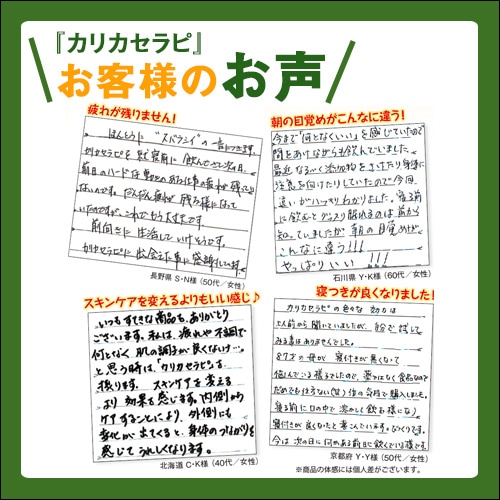 『カリカセラピ』
お客様のお声
疲れが残りません!
ほんとうに"スバラシイ"の一言につきます。
カリカセラピを
寝前に飲んで
毎日のハードな
仕事の疲れが残って
ないのです。だんだん疲れが残る様になって
いたのですが、これでもう大丈夫です。
前向きに生活していけそうです。
カリカセラピに出会えた事に感謝しています。
長野県 S・N様 (50代/女性)
朝の目覚めがこんなに違う!
今まで"何となくいい"を感じていたので
間をあけながらも飲んでいました。
最近なるべく添加物をさけたり身体に
注意を向けたりしていたので今回
違いがハッキリわかりました。寝る前
に飲むとグッスリ眠れるのは前から
知っていましたが朝の目覚めが
こんなに違う!!!
やっぱりいい!!!
石川県 Y・K様 (60代/女性)
スキンケアを変えるよりもいい感じ♪
いつもすてきな商品をありがとう
ございます。私は、疲れや不調で
何となく肌の調子が良くないナ…。
と思う時は、『カリカセラピ』を
摂ります。スキンケアを変える
より効果を感じます。内側から
ケアすることにより、外側にも
変化が出てくると、身体のつながりを
感じてうれしくなります。
北海道 C・K様 (40代/女性)
寝つきが良くなりました!
カリカセラピの色々な効力は
以前から聞いていましたが、自分で試して
みる事はありませんでした。
87才の母が寝付きが悪くなって
悩んでいる様子でしたので、薬ではなく食品なので
だめでも仕方ない
位の気持で購入しました。
寝る前に口の中で溶かして飲む様になり
寝付きが良くなったと喜んでいます。びっくりです。
今は次の日に何かある前日に飲んでいる様です。
京都府 Y・Y様 (50代/女性)
※商品の体感には個人差がございます。